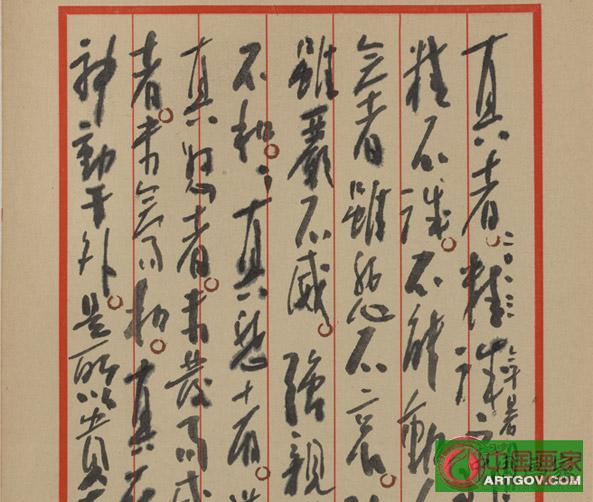 真者。精誠
精不誠。不能動
者雖悲不哀。
雖嚴不威。强親
不和。真悲
真怒者。未發而威
者。未笑而和。真在
神動于外。是所以貴
年暑
中国画家
ARTGOV.COM